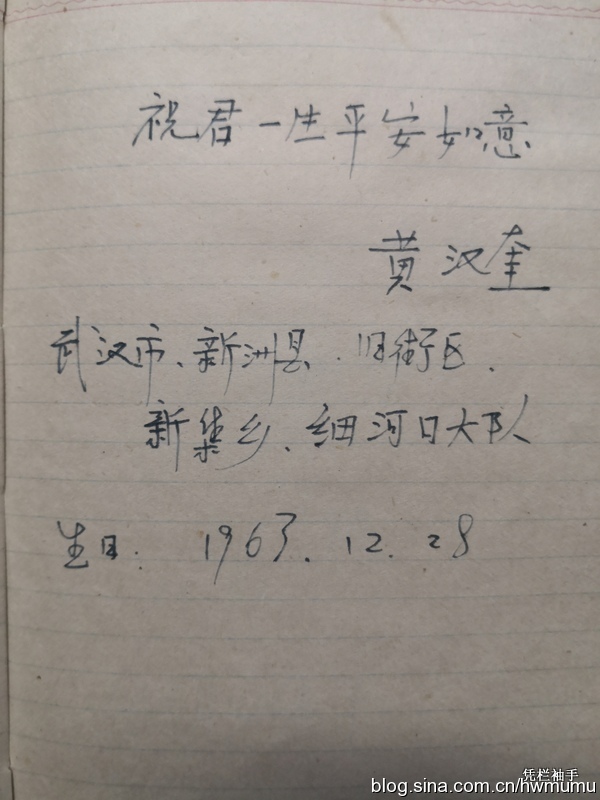 祝君一生平安如意
黄汉奎
武汉市、新洲县.旧街区.
新集乡、细河口大队
生日. 1963.12.28
凭栏袖手
blog.sina.com.cn/hwmumu